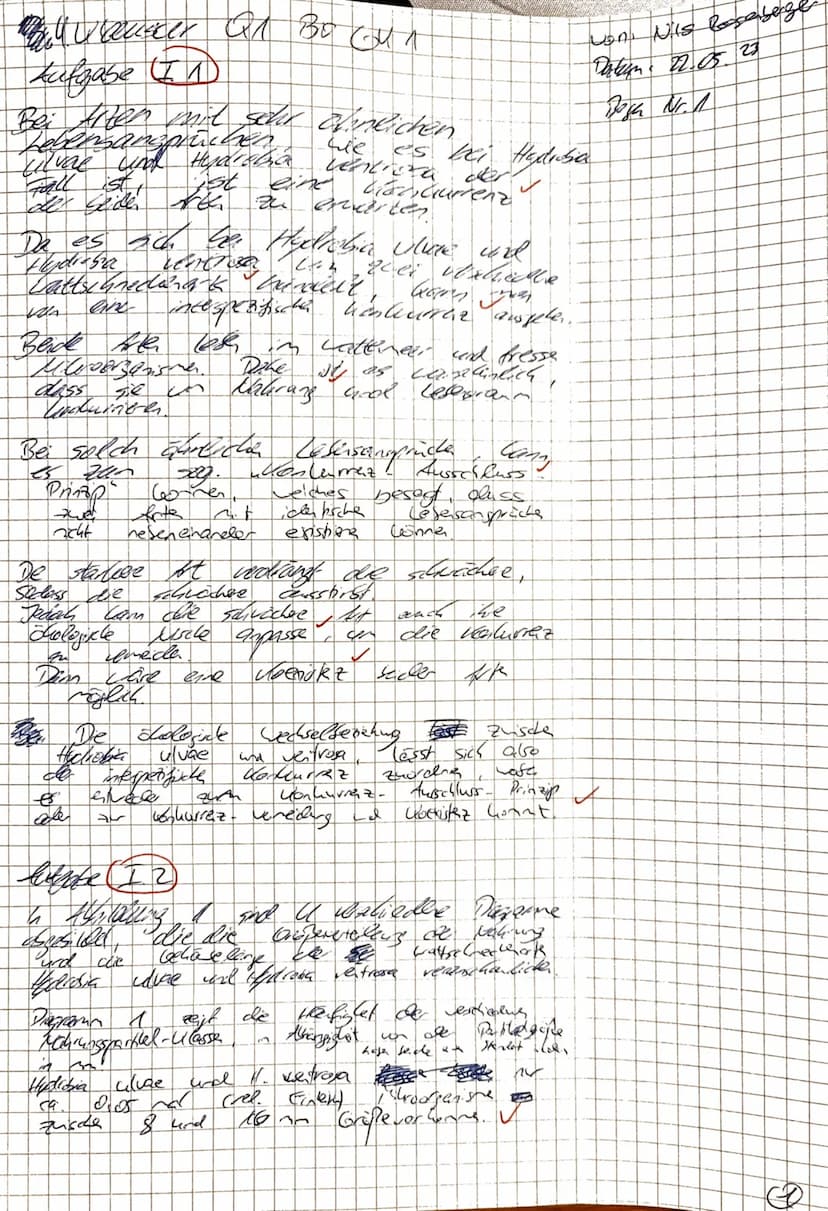 Klausur Q1 BO GK1
von: Nils Rosenberger
Datum: 22.05.23
Bogn Nr. 1
Aufgabe I 1
Bei Arten mit sehr ähnlichen
Lebensansprüchen, wie es bei Hydrobia
ulvae und Hydrobia ventrosa der
Fall ist, ist eine Konkurrenz
der beiden Arten zu erwarten.
Da es sich bei Hydrobia ulvae und
Hydrobia ventrosa um zwei verschiedene
Wattschneckenarten handelt, kann man
von einer interspezifischen Konkurrenz ausgehen.
Beide Arten leben im Wattenmeer und fressen
Mikroorganismen. Daher ist es wahrscheinlich,
dass sie um Nahrung und Lebensraum
konkurrieren.
Bei solch ähnlichen Lebensansprüchen, kann
es zum sog. "Konkurrenz-Ausschluss-
Prinzip" kommen, welches besagt, dass
zwei Arten mit identischen Lebensansprüchen
nicht nebeneinander existieren können.
Die stärkere Art verdrängt die schwächere,
sodass die schwächere ausstirbt.
Jedoch kann die schwächere Art auch ihre
ökologische Nische anpassen, um die Konkurrenz
zu vermeiden.
Dann wäre eine Koexistenz beider Arten
möglich.
Die ökologische Wechselbeziehung zwischen
Hydrobia ulvae und ventrosa, lässt sich also
der interspezifischen Konkurrenz zuordnen, wobei
es entweder zum Konkurrenz-Ausschluss-Prinzip
oder zur Konkurrenz-vermeidung und Koexistenz kommt.
Aufgabe I 2
In Abbildung 1 sind 4 verschiedene Diagramme
abgebildet, die die Größenverteilung der Nahrung
und die Gehäuselänge der Wattschneckenarten
Hydrobia ulvae und Hydrobia ventrosa veranschaulichen.
Diagramm 1 zeigt die Häufigkeit der verschiedenen
Nahrungspartikel-Klassen, in Abhängigkeit von der Partikelgröße
in
Hydrobia ulvae und H. ventrosa nur
ca. 0,05 mal (rel. Einheit) Mikroorganismen
zwischen 8 und 16 Größe vorkommen.
-1